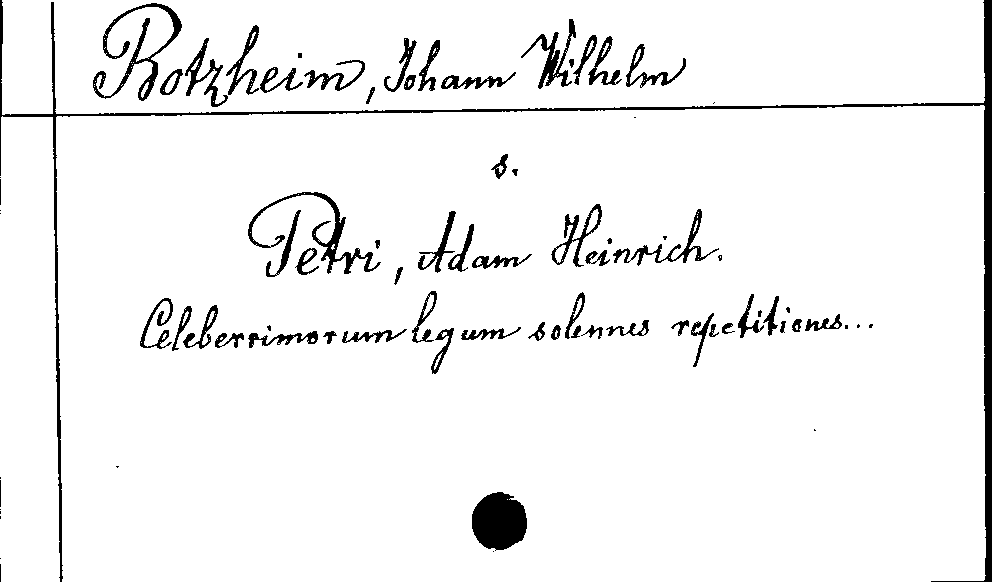 Botzheim, Johann Wilhelm
s.
Petri, Adam Heinrich.
Celeberrimorum legum solennes repetitiones...